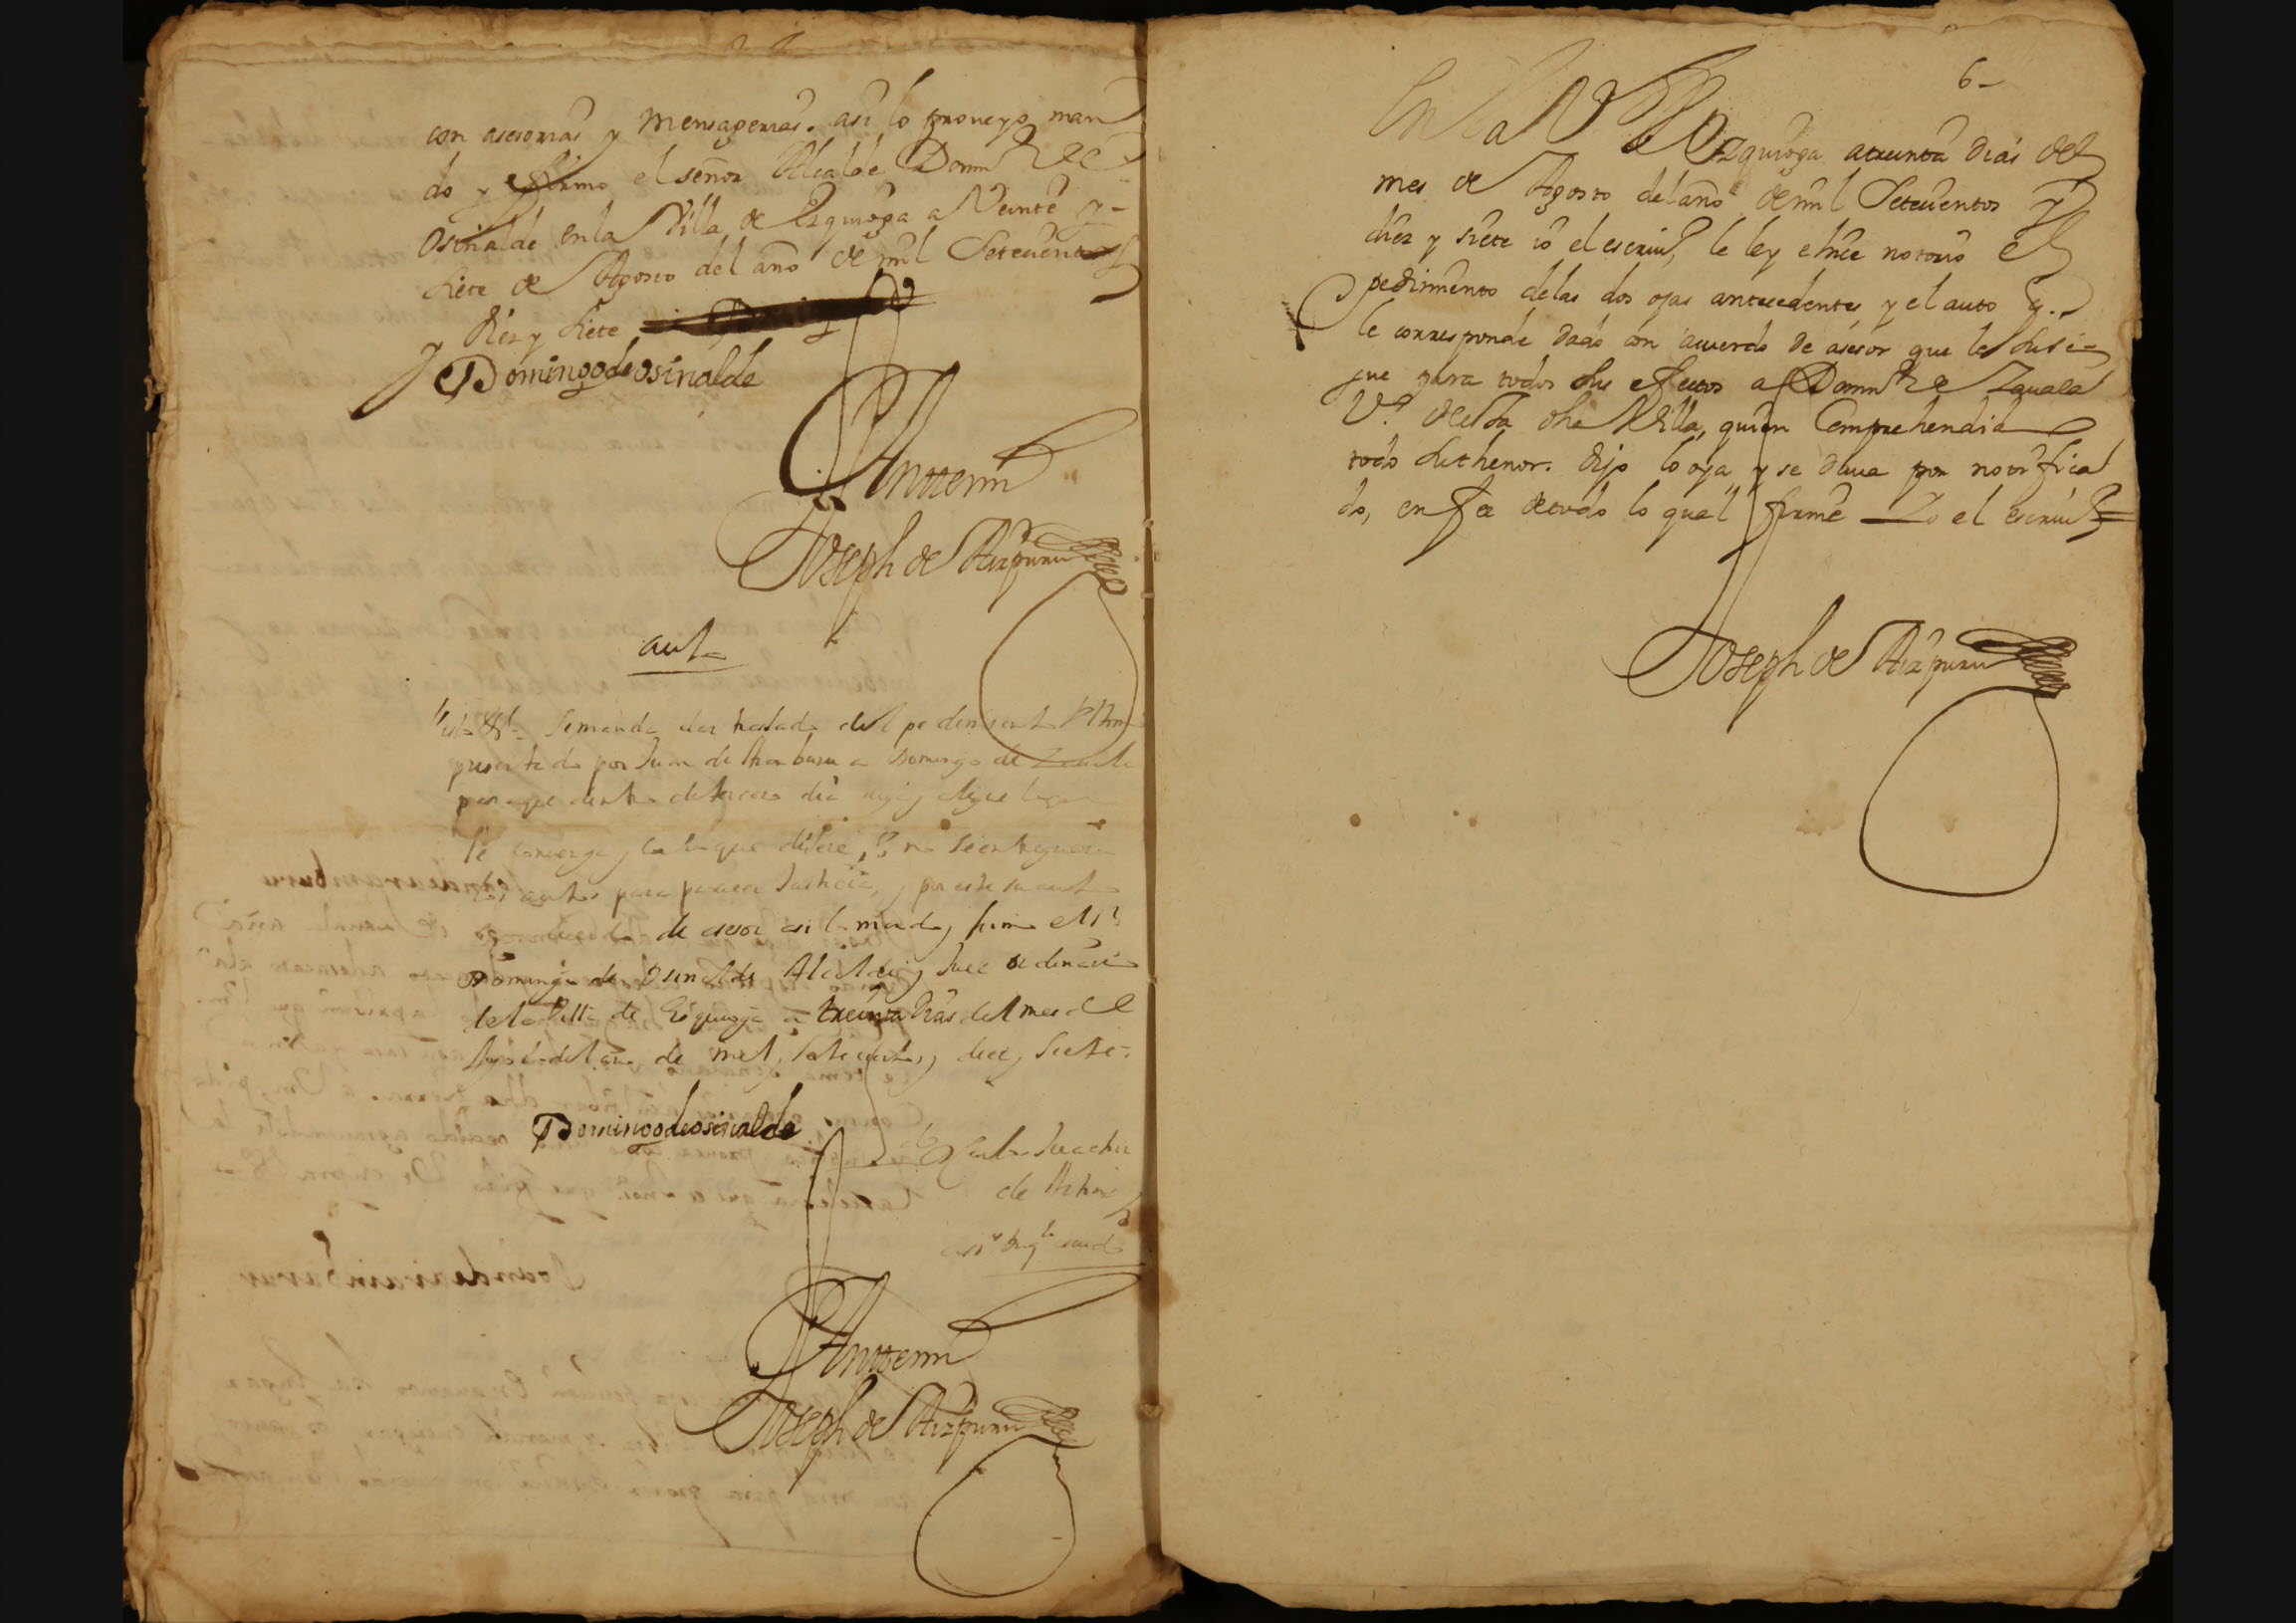 con asesorias y mensagerias. asi lo proveyo man
do y firmo el señor Alcalde Domin.º de
Osinalde en la Villa de Ezquioga a Veinte y
siete de Agosto del año de mil Setecientos
y diez y siete
Domingo de osinalde
Antemi
Joseph de Aizpuru
auto
Se manda dar traslado del pedimiento
presentado por Juan de Aramburu a Domingo de Zavala
para que dentro de tercero dia diga y alegue lo que
le convenga y con lo que dijere, o no se entreguen
los autos para proveer Justicia, y por este su auto
con acuerdo de asesor asi lo mando y firmo el s.r
Domingo de Osinalde Alcalde y Juez ordinario
de la Villa de Ezquioga a treinta dias del mes de
Agosto del año de mil setecientos y diez y siete
Domingo de osinalde
Antemi
Joseph de Aizpuru
6
En la Villa de Ezquioga a treinta dias del
mes de Agosto del año de mil Setecientos y
diez y siete io el escriu.º le ley e hice notorio el
pedimento de las dos ojas antecedentes y el auto q.
le corresponde dado con acuerdo de asesor que le susi
gue para todos sus efectos a Domin.º de Zauala
V.º de esta dha Villa, quien Comprehendid
todo su thenor. dijo lo oya y se daua por notifica
do, en fee de todo lo qual firmé Yo el escriu.º
Joseph de Aizpuru